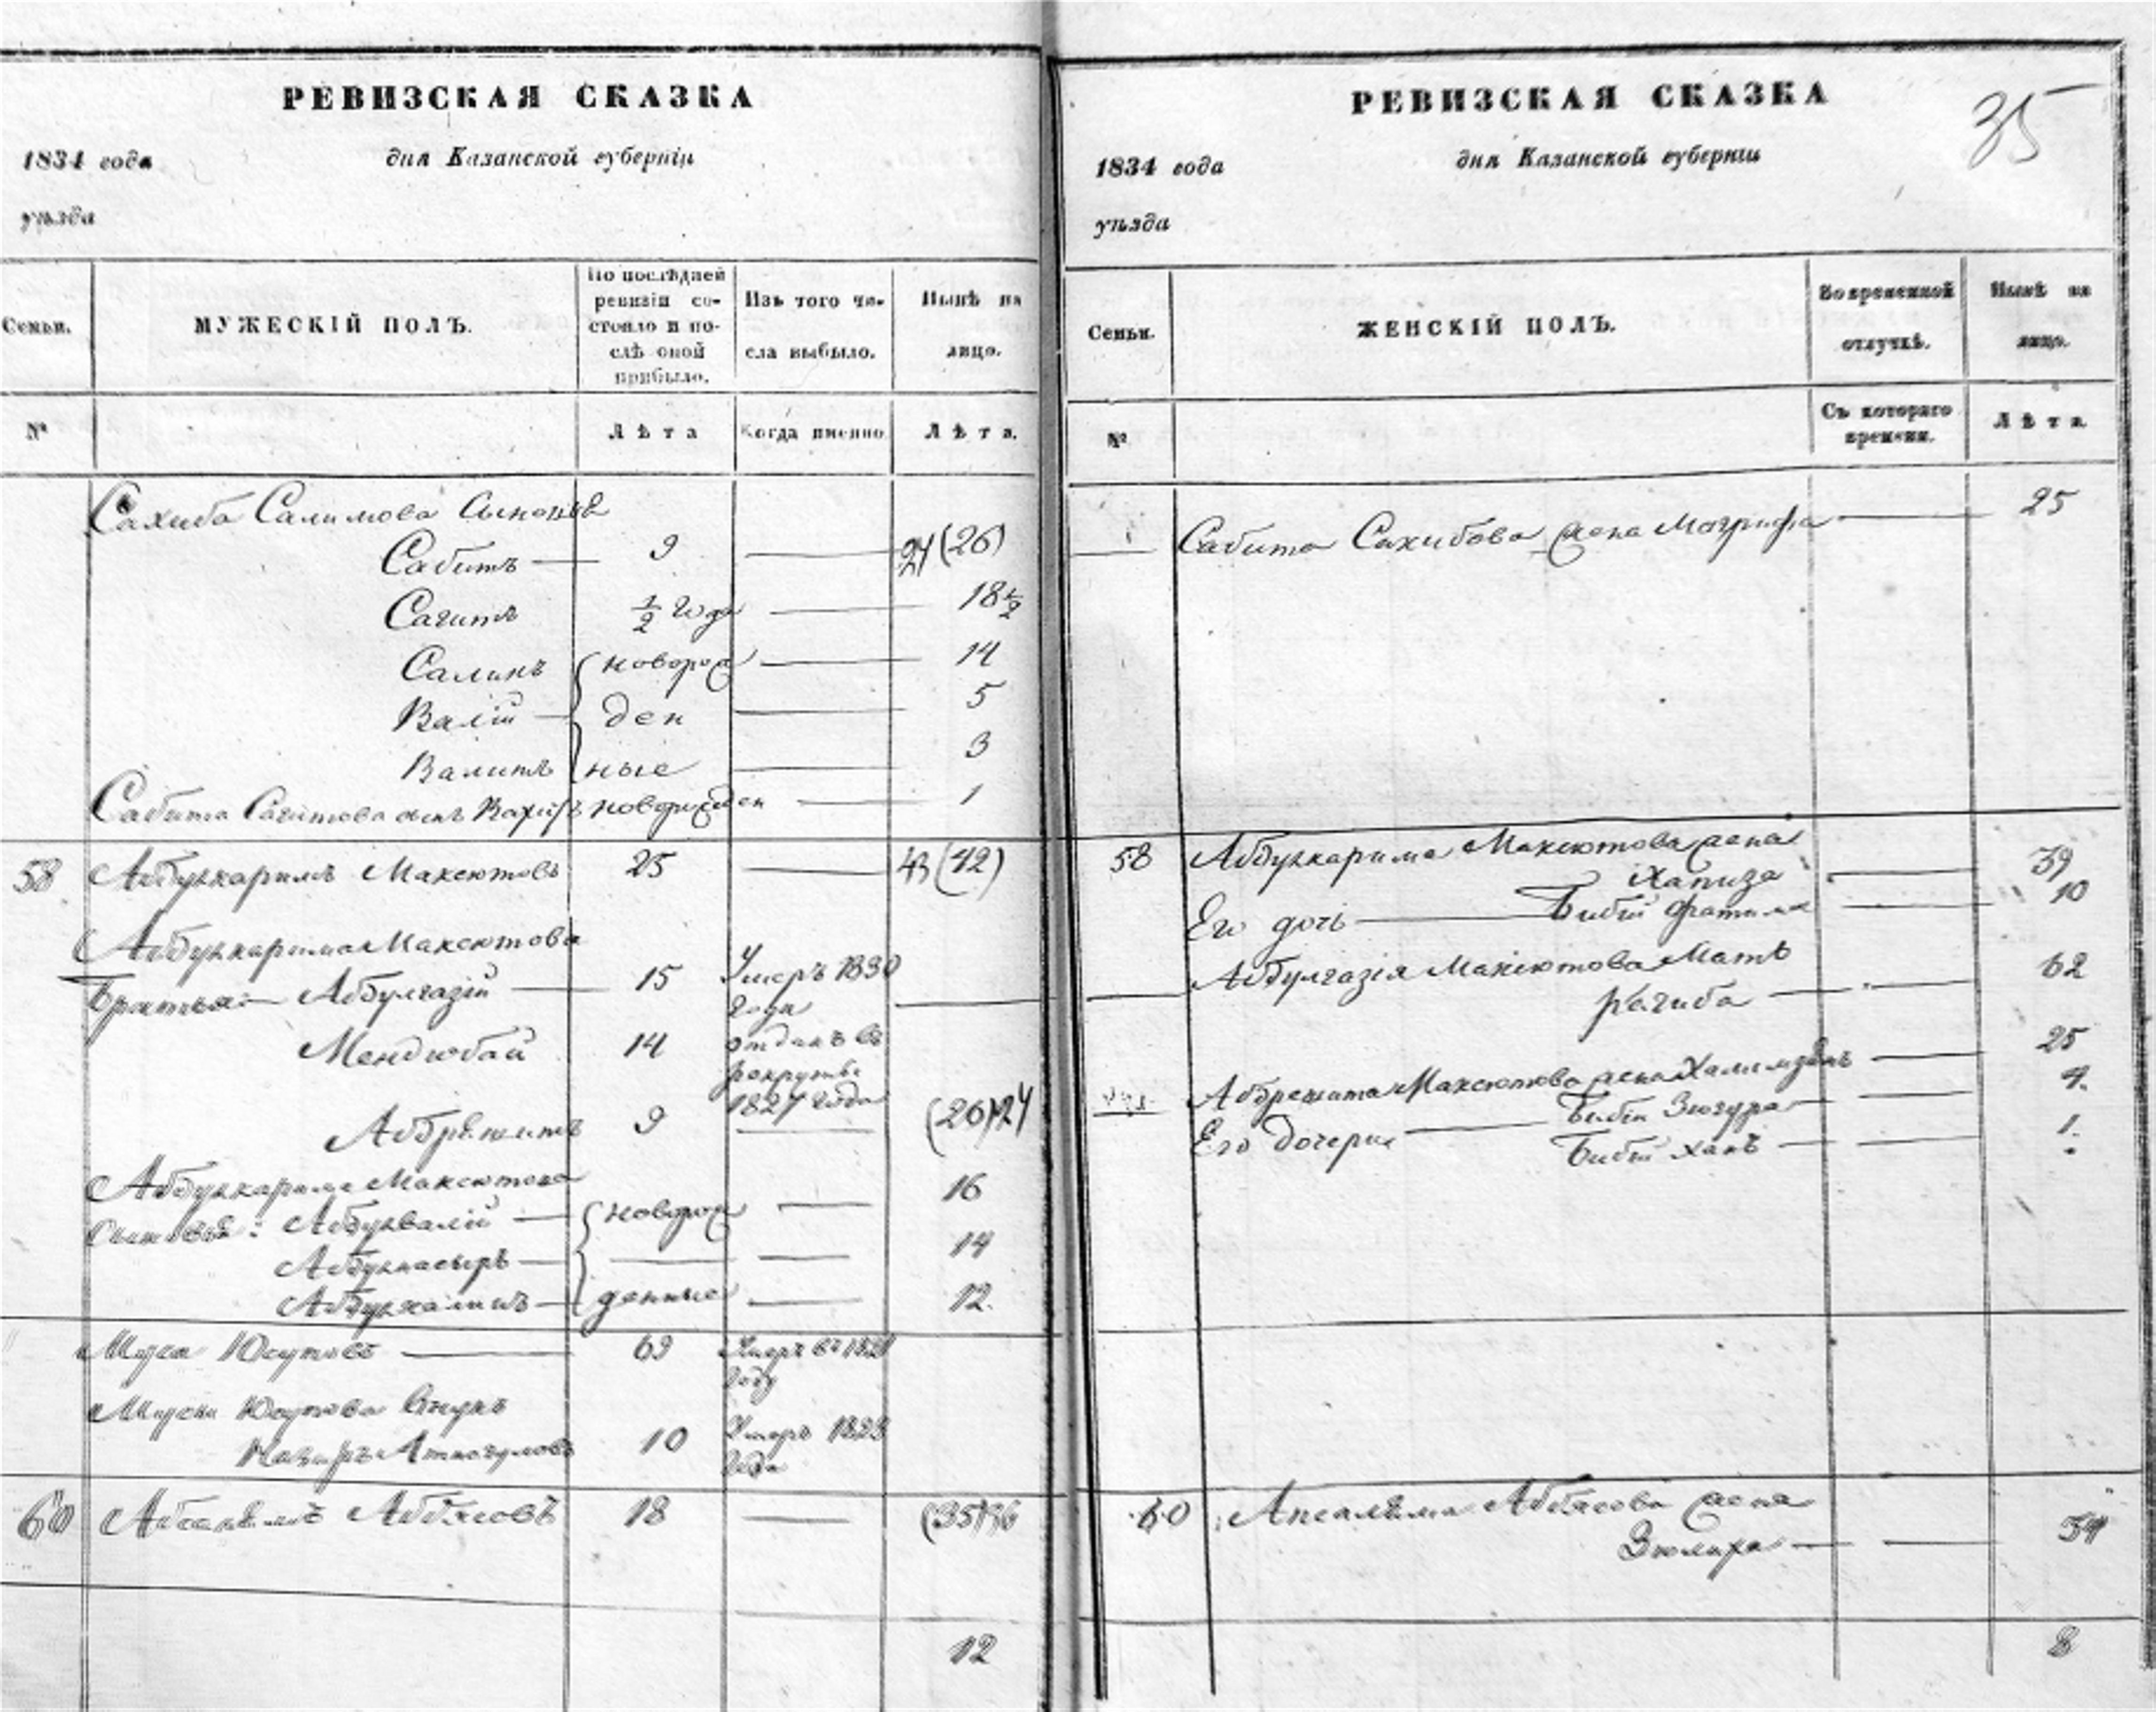 РЕВИЗСКАЯ СКАЗКА
1834 года дня Казанской губернiи
уѣзда
Семьи. МУЖЕСКIЙ ПОЛЪ. По послѣдней ревизiи состояло и послѣ оной прибыло. Изъ того числа выбыло. Нынѣ на лицо.
№ Лѣта Когда именно Лѣта.
Сахиба Салимова Сыновья
Сабитъ — 9 — 24 (26)
Сагитъ ½ года — 18½
Салихъ новорож — 14
Валiй — ден — 5
Валитъ ные — 3
Сабита Сагитова сынъ Вахитъ новорожден — 1
58 Абдулкаримъ Максютовъ 25 — 43 (42)
Абдулкарима Максютова
Братья: — Абдулгазiй — 15 Умеръ 1830 года —
Мендюбай 14 отданъ въ рекруты 1827 года
Абдрешитъ 9 — (26) 24
Абдулкарима Максютова
Сыновья: Абдулвалiй — новорож — 16
Абдулнасыръ — — — 14
Абдулхалимъ — денные — 12.
Муса Юсуповъ — 69 Умеръ въ 1821 году
Мусы Юсупова внукъ
10 Умеръ 1823 года
60 Абдясовъ 18 — (35) 36
12
РЕВИЗСКАЯ СКАЗКА 35
1834 года дня Казанской губернiи
уѣзда
Семьи. ЖЕНСКIЙ ПОЛЪ. Во временной отлучкѣ. Нынѣ на лицо.
№ Съ котораго времени. Лѣта.
— Сабита Сахибова жена Магрифа — 25
58 Абдулкарима Максютова жена
Хапиза — 39
Его дочь — Бибiй Фатима — 10
— Абдулгазiя Максютова Мать
Рагиба — — 62
Абдрешита Максютова жена — 25
Его дочери — Бибiй Зюгура — 4.
Бибiй ханъ — — 1.
60 Апсаляма Абдясова жена
Зюлиха — — 34
8